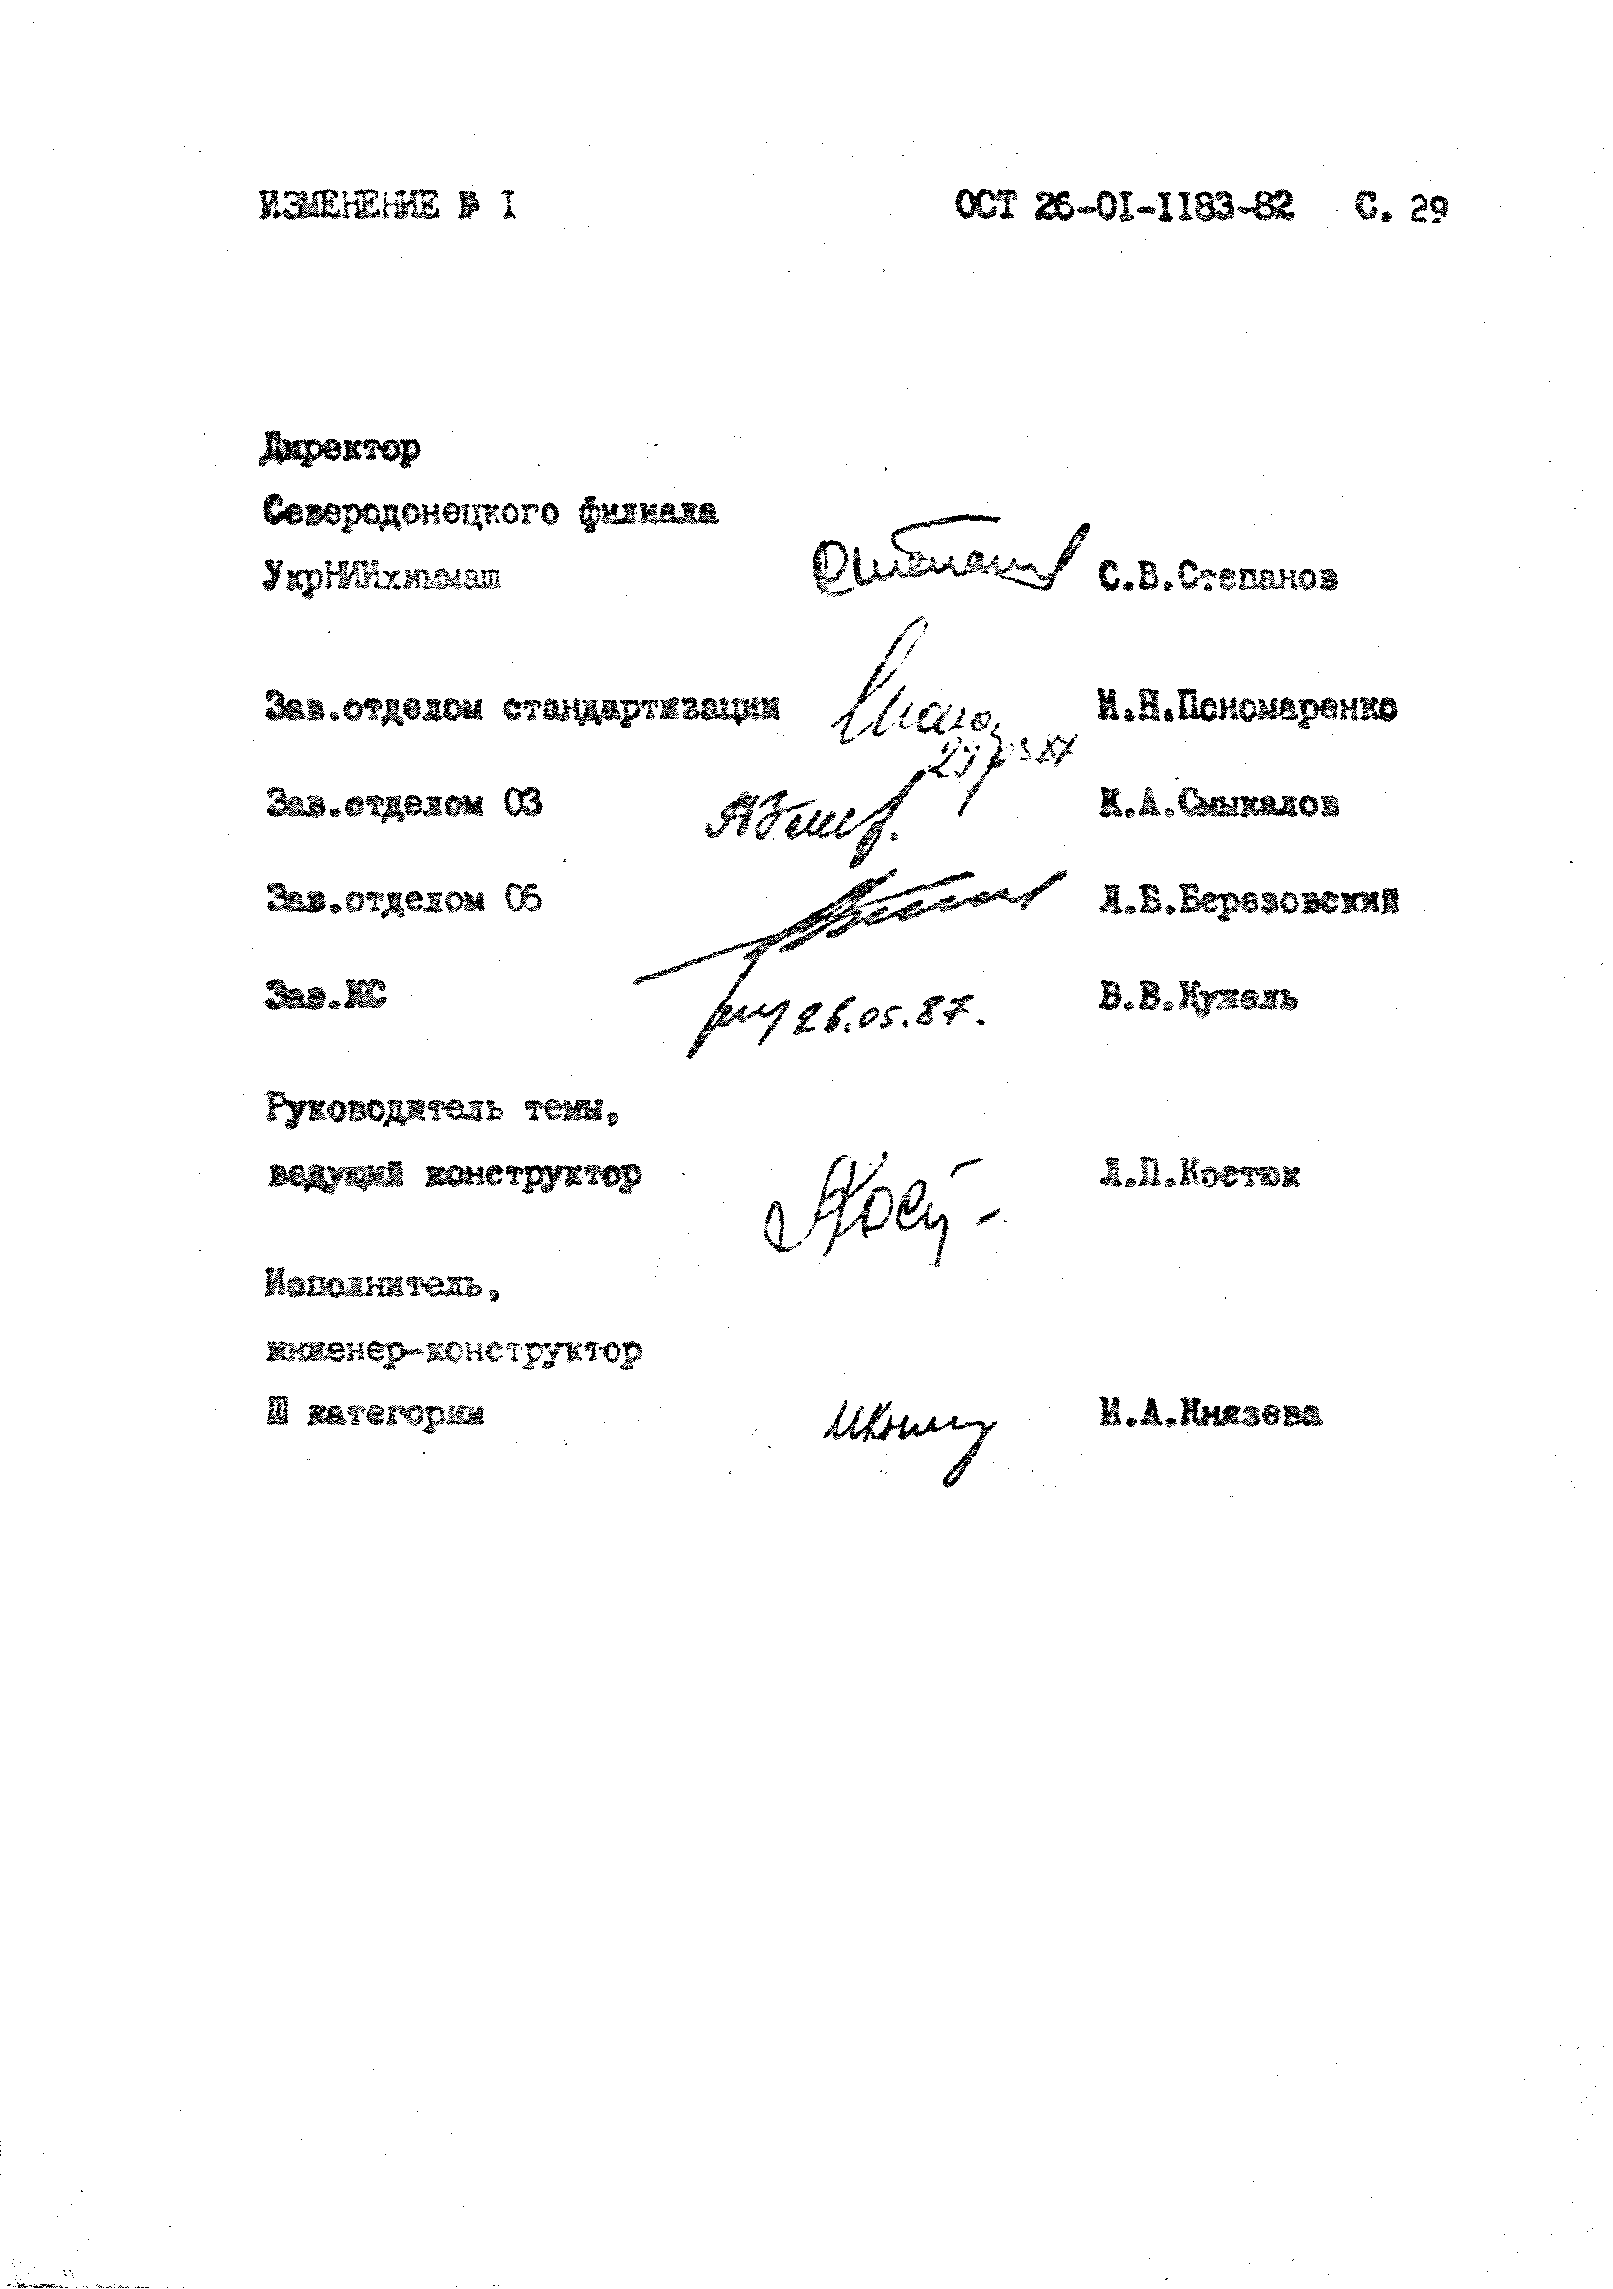 ИЗМЕНЕНИЕ № I ОСТ 26-01-1183-82 С. 29
Директор
Северодонецкого филиала
УкрНИИхиммаш С.В.Степанов
Зав.отделом стандартизации И.Н.Пономаренко
Зав.отделом 03 К.А.Смыкалов
Зав.отделом 05 Л.Б.Березовский
Зав.КС 26.05.87. В.В.Кухаль
Руководитель темы,
ведущий конструктор Л.П.Костюк
Исполнитель,
инженер-конструктор
Ш категории И.А.Князева